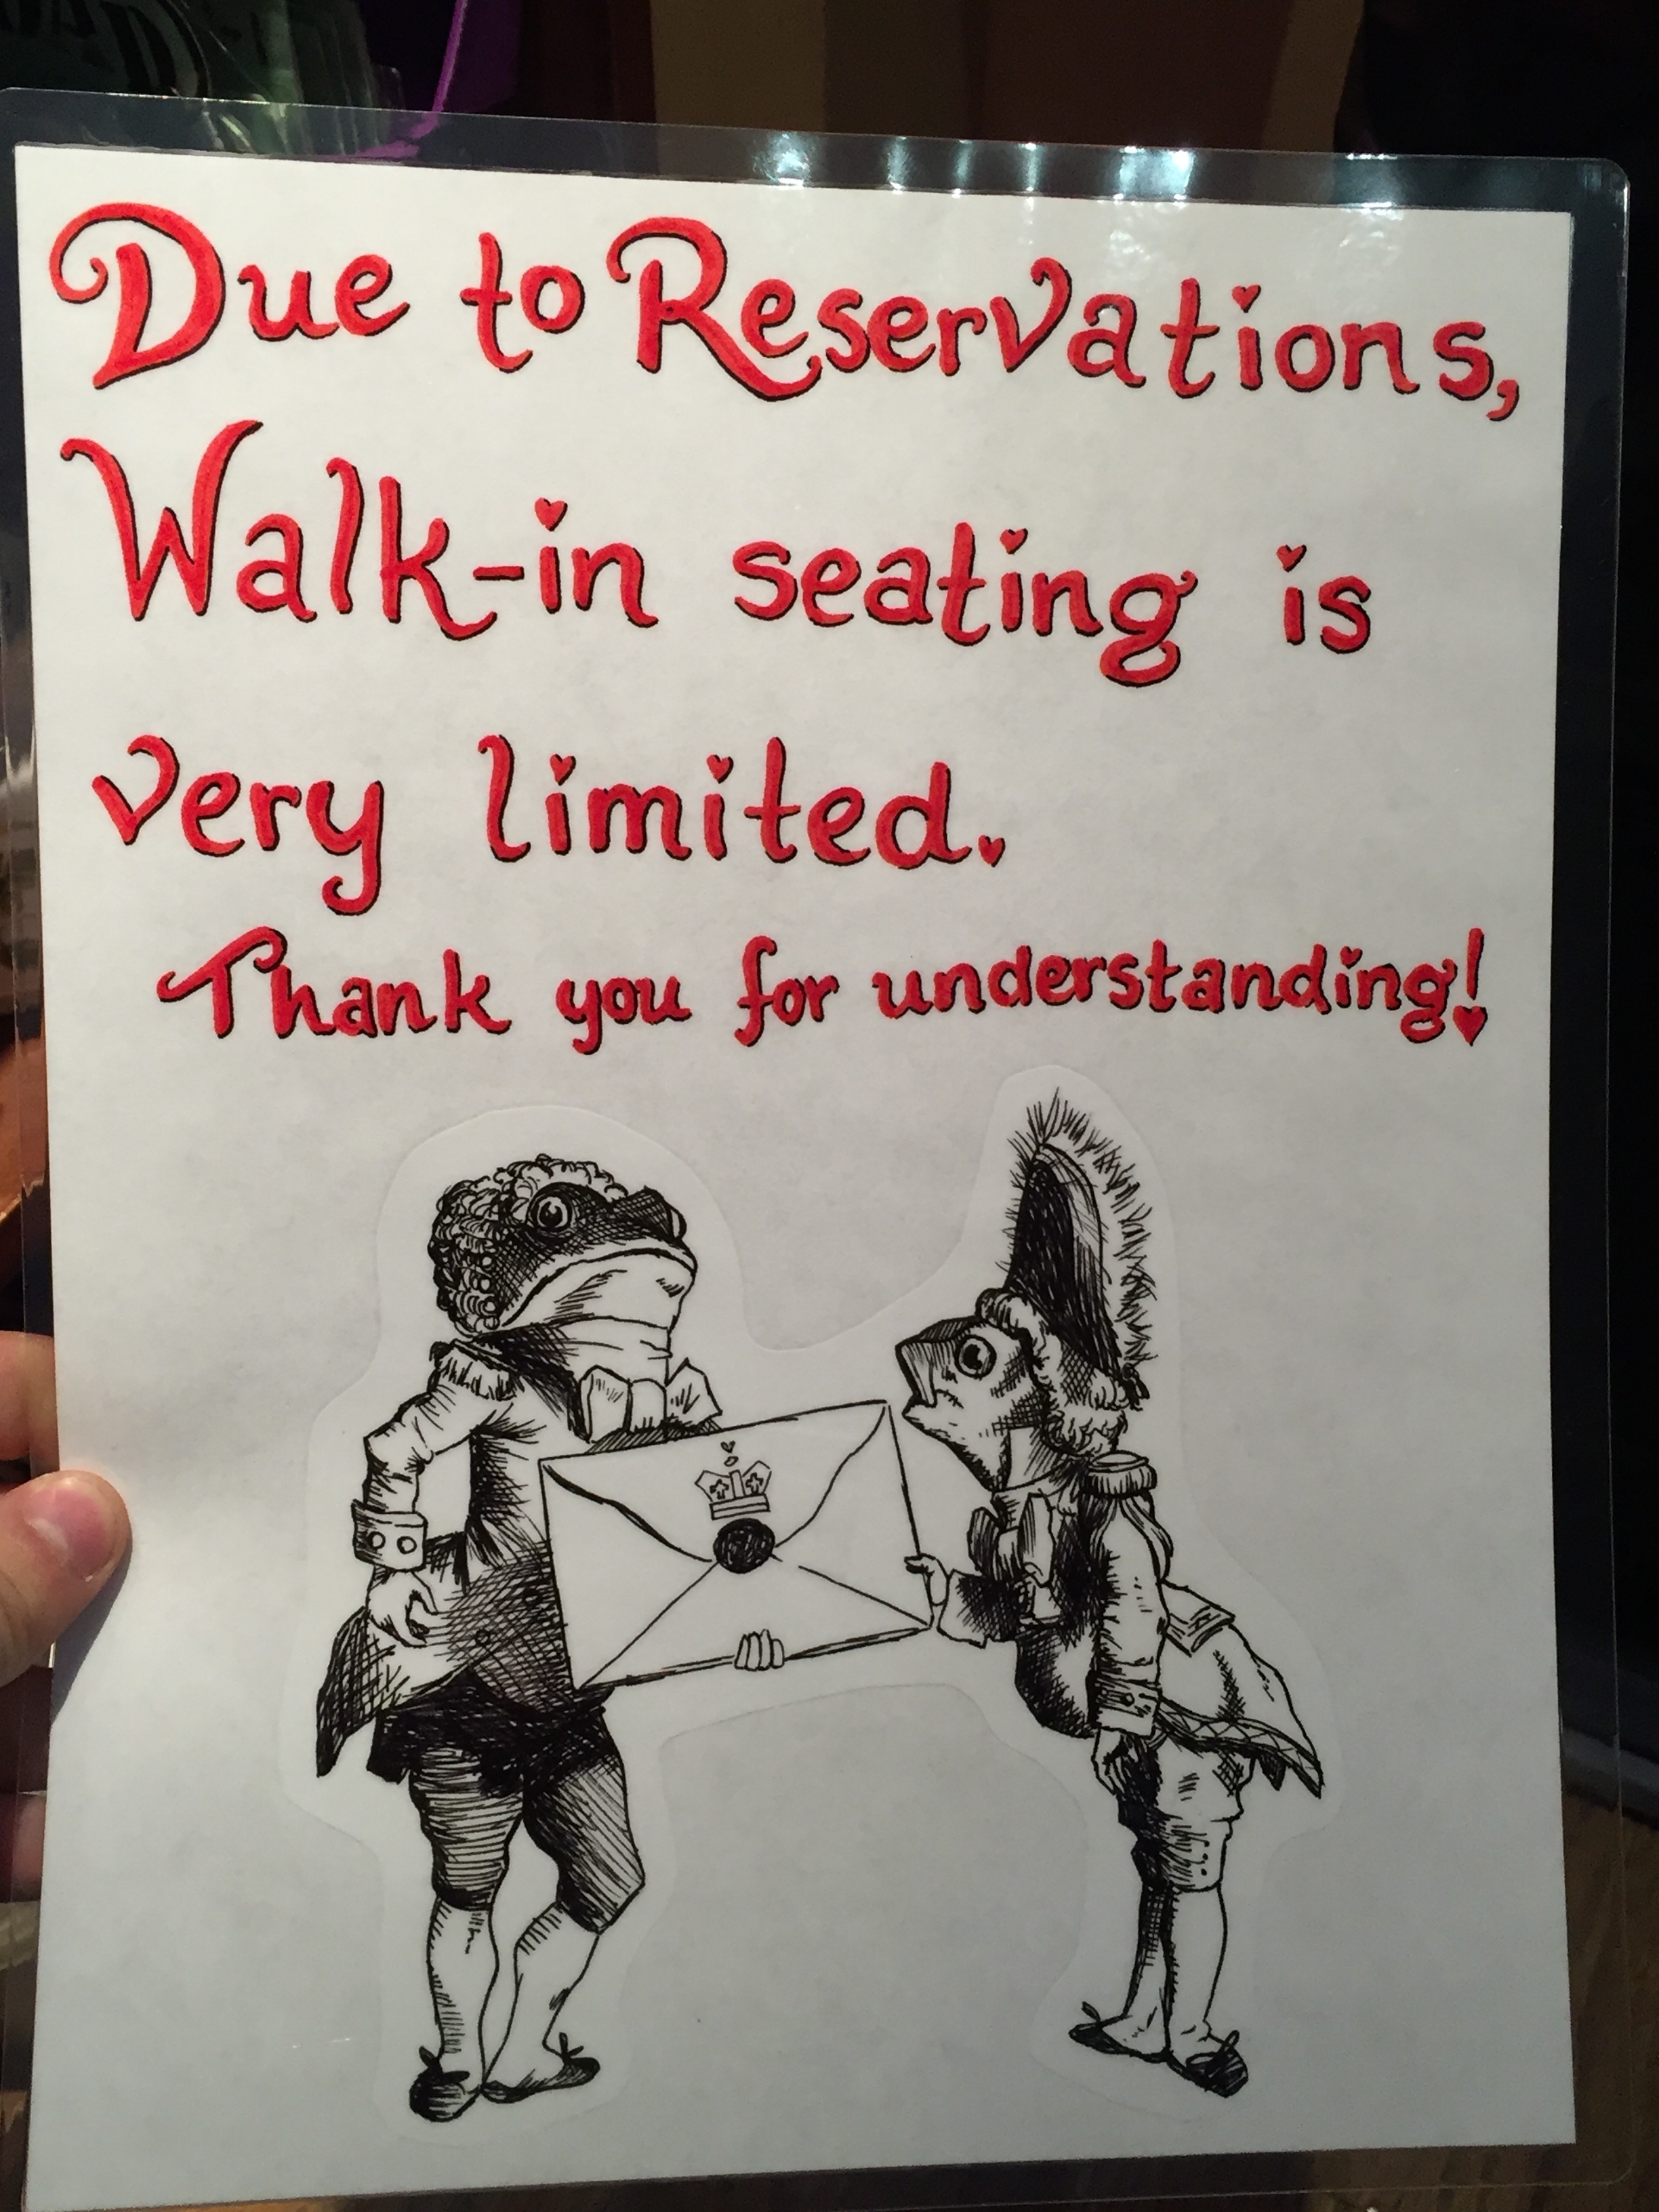 Due to Reservations,
Walk-in seating is
very limited.
Thank you for understanding!